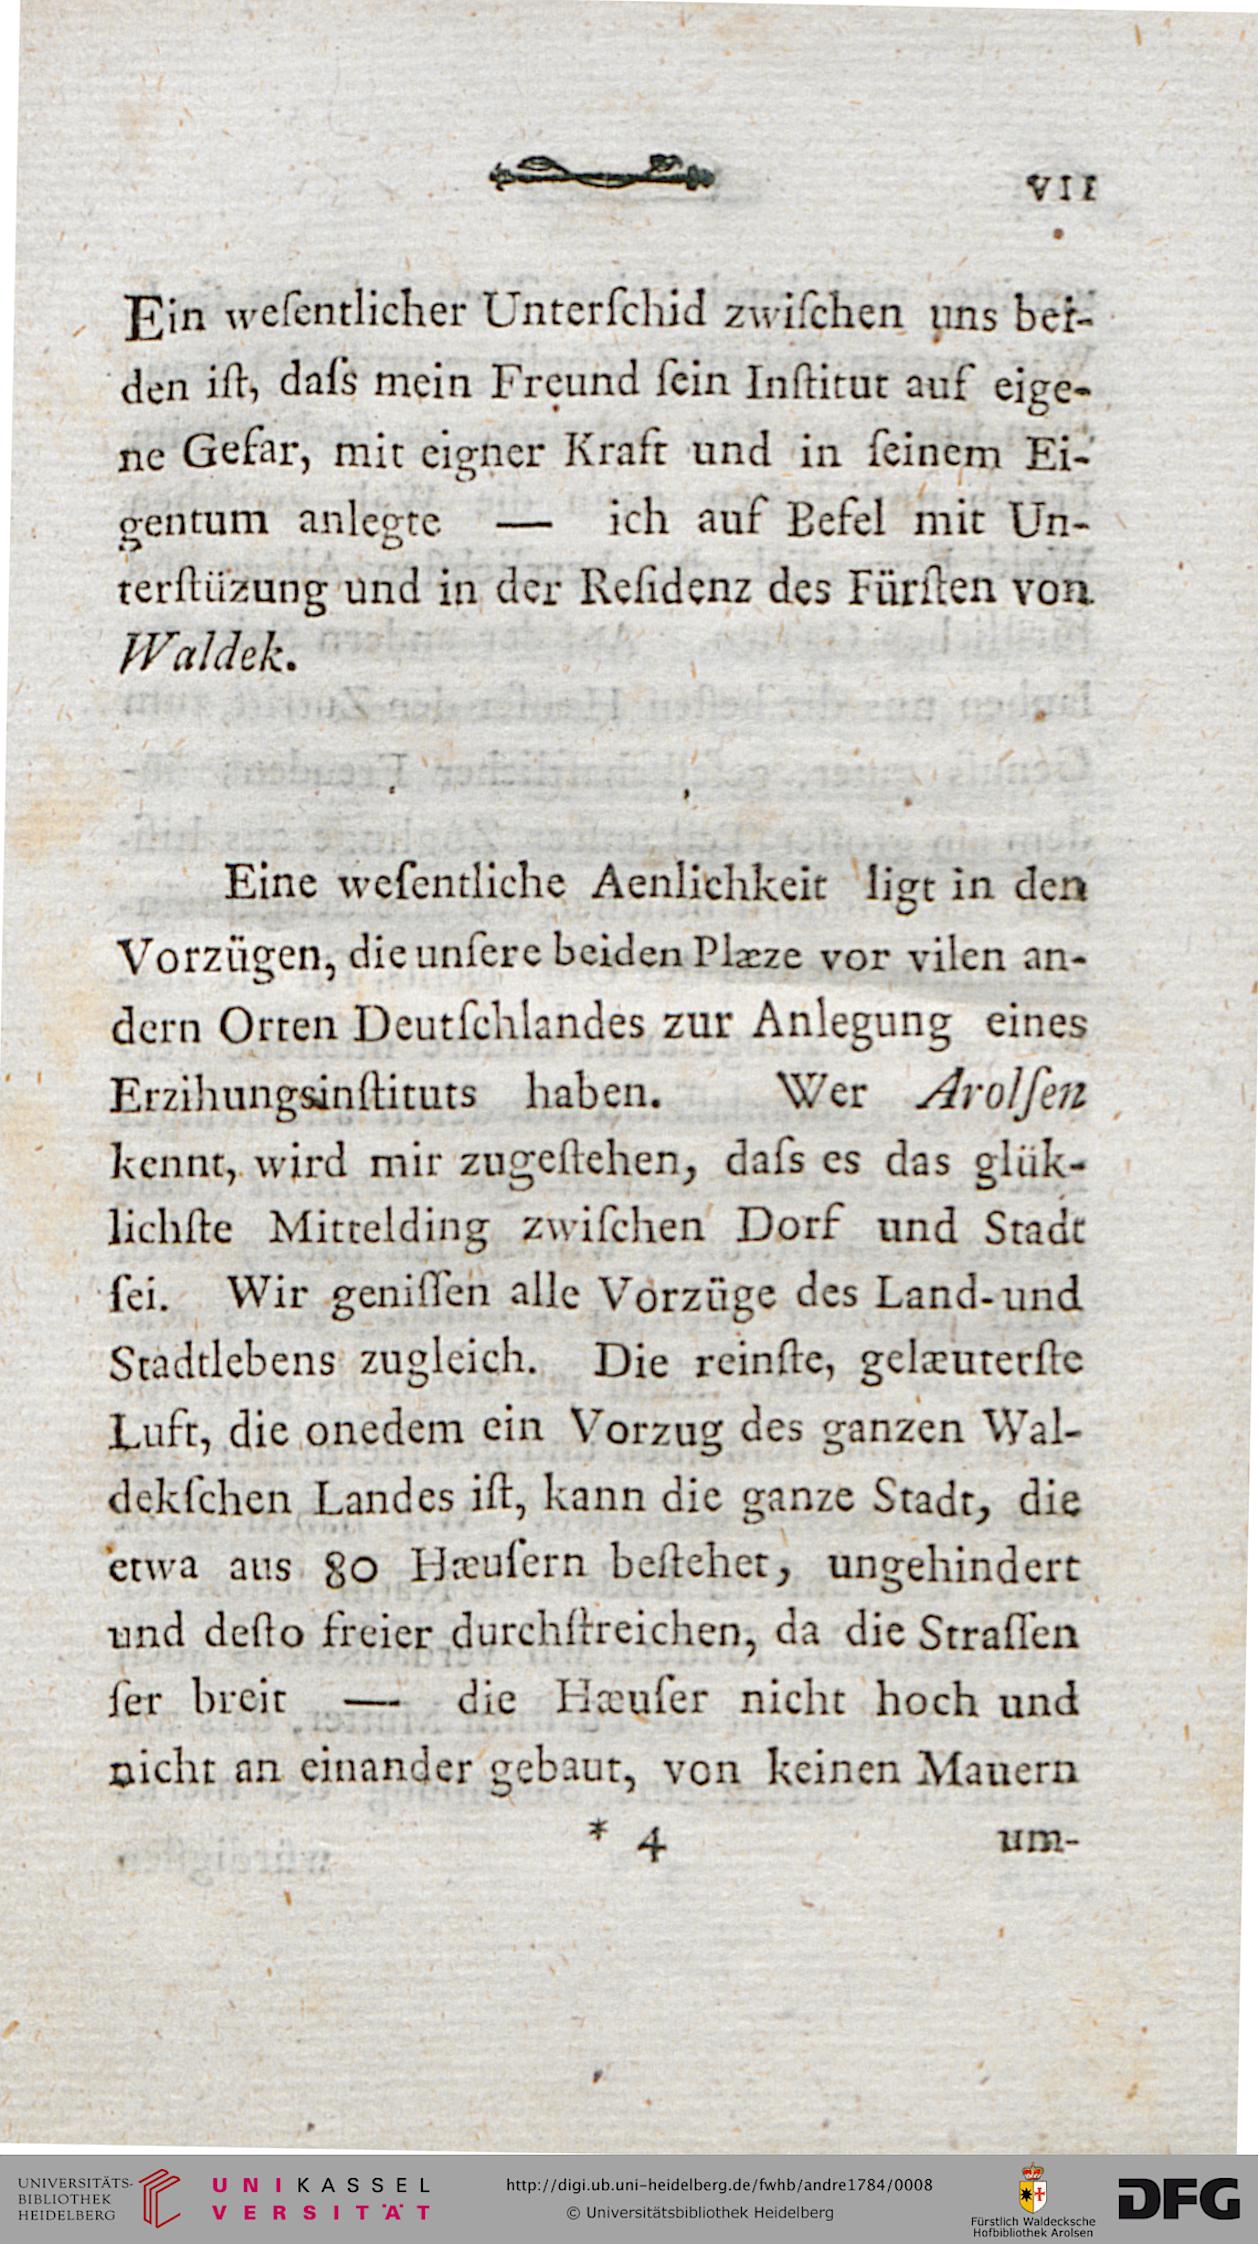 VII
Ein weſentlicher Unterſchid zwiſchen uns bei-
den iſt, daſs mein Freund ſein Inſtitut auf eige-
ne Gefar, mit eigner Kraft und in ſeinem Ei-
gentum anlegte — ich auf Befel mit Un-
terſtüzung und in der Reſidenz des Fürſten von
Waldek.
Eine weſentliche Aenlichkeit ligt in den
Vorzügen, die unſere beiden Plæze vor vilen an-
dern Orten Deutſchlandes zur Anlegung eines
Erzihungsinſtituts haben. Wer Arolſen
kennt, wird mir zugeſtehen, daſs es das glük-
lichſte Mittelding zwiſchen Dorf und Stadt
ſei. Wir geniſſen alle Vorzüge des Land-und
Stadtlebens zugleich. Die reinſte, gelæuterſte
Luft, die onedem ein Vorzug des ganzen Wal-
dekſchen Landes iſt, kann die ganze Stadt, die
etwa aus 80 Hæuſern beſtehet, ungehindert
und deſto freier durchſtreichen, da die Straſſen
ſer breit — die Hæuſer nicht hoch und
nicht an einander gebaut, von keinen Mauern
* 4 um-
UNIVERSITÄTS-
BIBLIOTHEK
HEIDELBERG
UNIKASSEL
VERSITÄT
http://digi.ub.uni-heidelberg.de/fwhb/andre1784/0008
© Universitätsbibliothek Heidelberg
Fürstlich Waldecksche
Hofbibliothek Arolsen
DFG